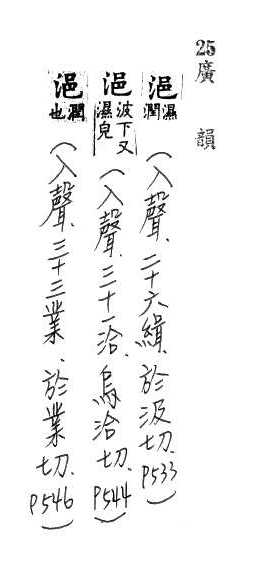 25廣韻
浥濕潤(入聲、二十六緝、於汲切、P533)
浥波下又濕皃(入聲、三十一洽、烏洽切、P544)
浥潤也(入聲、三十三業、於業切、P546)